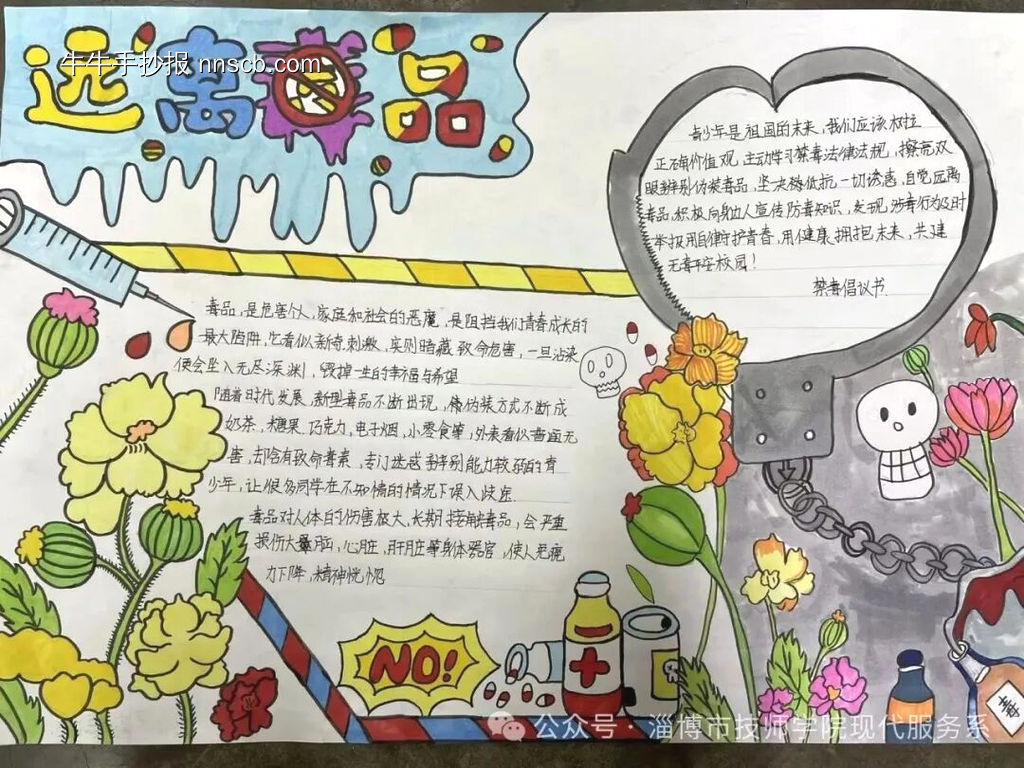 远离毒品
牛牛手抄报 nnscb.com
青少年是祖国的未来,我们应该树立
正确价值观,主动学习禁毒法律法规,擦亮双
眼辨别伪装毒品,坚决抵抗一切诱惑,自觉远离
毒品,积极向身边人宣传防毒知识,发现涉毒行为及时
举报用自律守护青春,用健康拥抱未来,共建
无毒平安校园!
禁毒倡议书
毒品,是危害个人,家庭和社会的恶魔,是阻挡我们青春成长的
最大陷阱,它看似新奇刺激,实则暗藏致命危害,一旦沾染
便会坠入无尽深渊,毁掉一生的幸福与希望
随着时代发展,新型毒品不断出现,伪装方式不断成
奶茶,糖果,巧克力,电子烟,小零食等,外表看似普通无
害,却含有致命毒素,专门迷惑辨别能力较弱的青
少年,让很多同学在不知情的情况下误入歧途
毒品对人体的伤害极大,长期接触毒品,会严重
损伤大脑,心脏,肝脏等身体器官,使人免疫
力下降,精神恍惚
NO!
毒
公众号·淄博市技师学院现代服务系